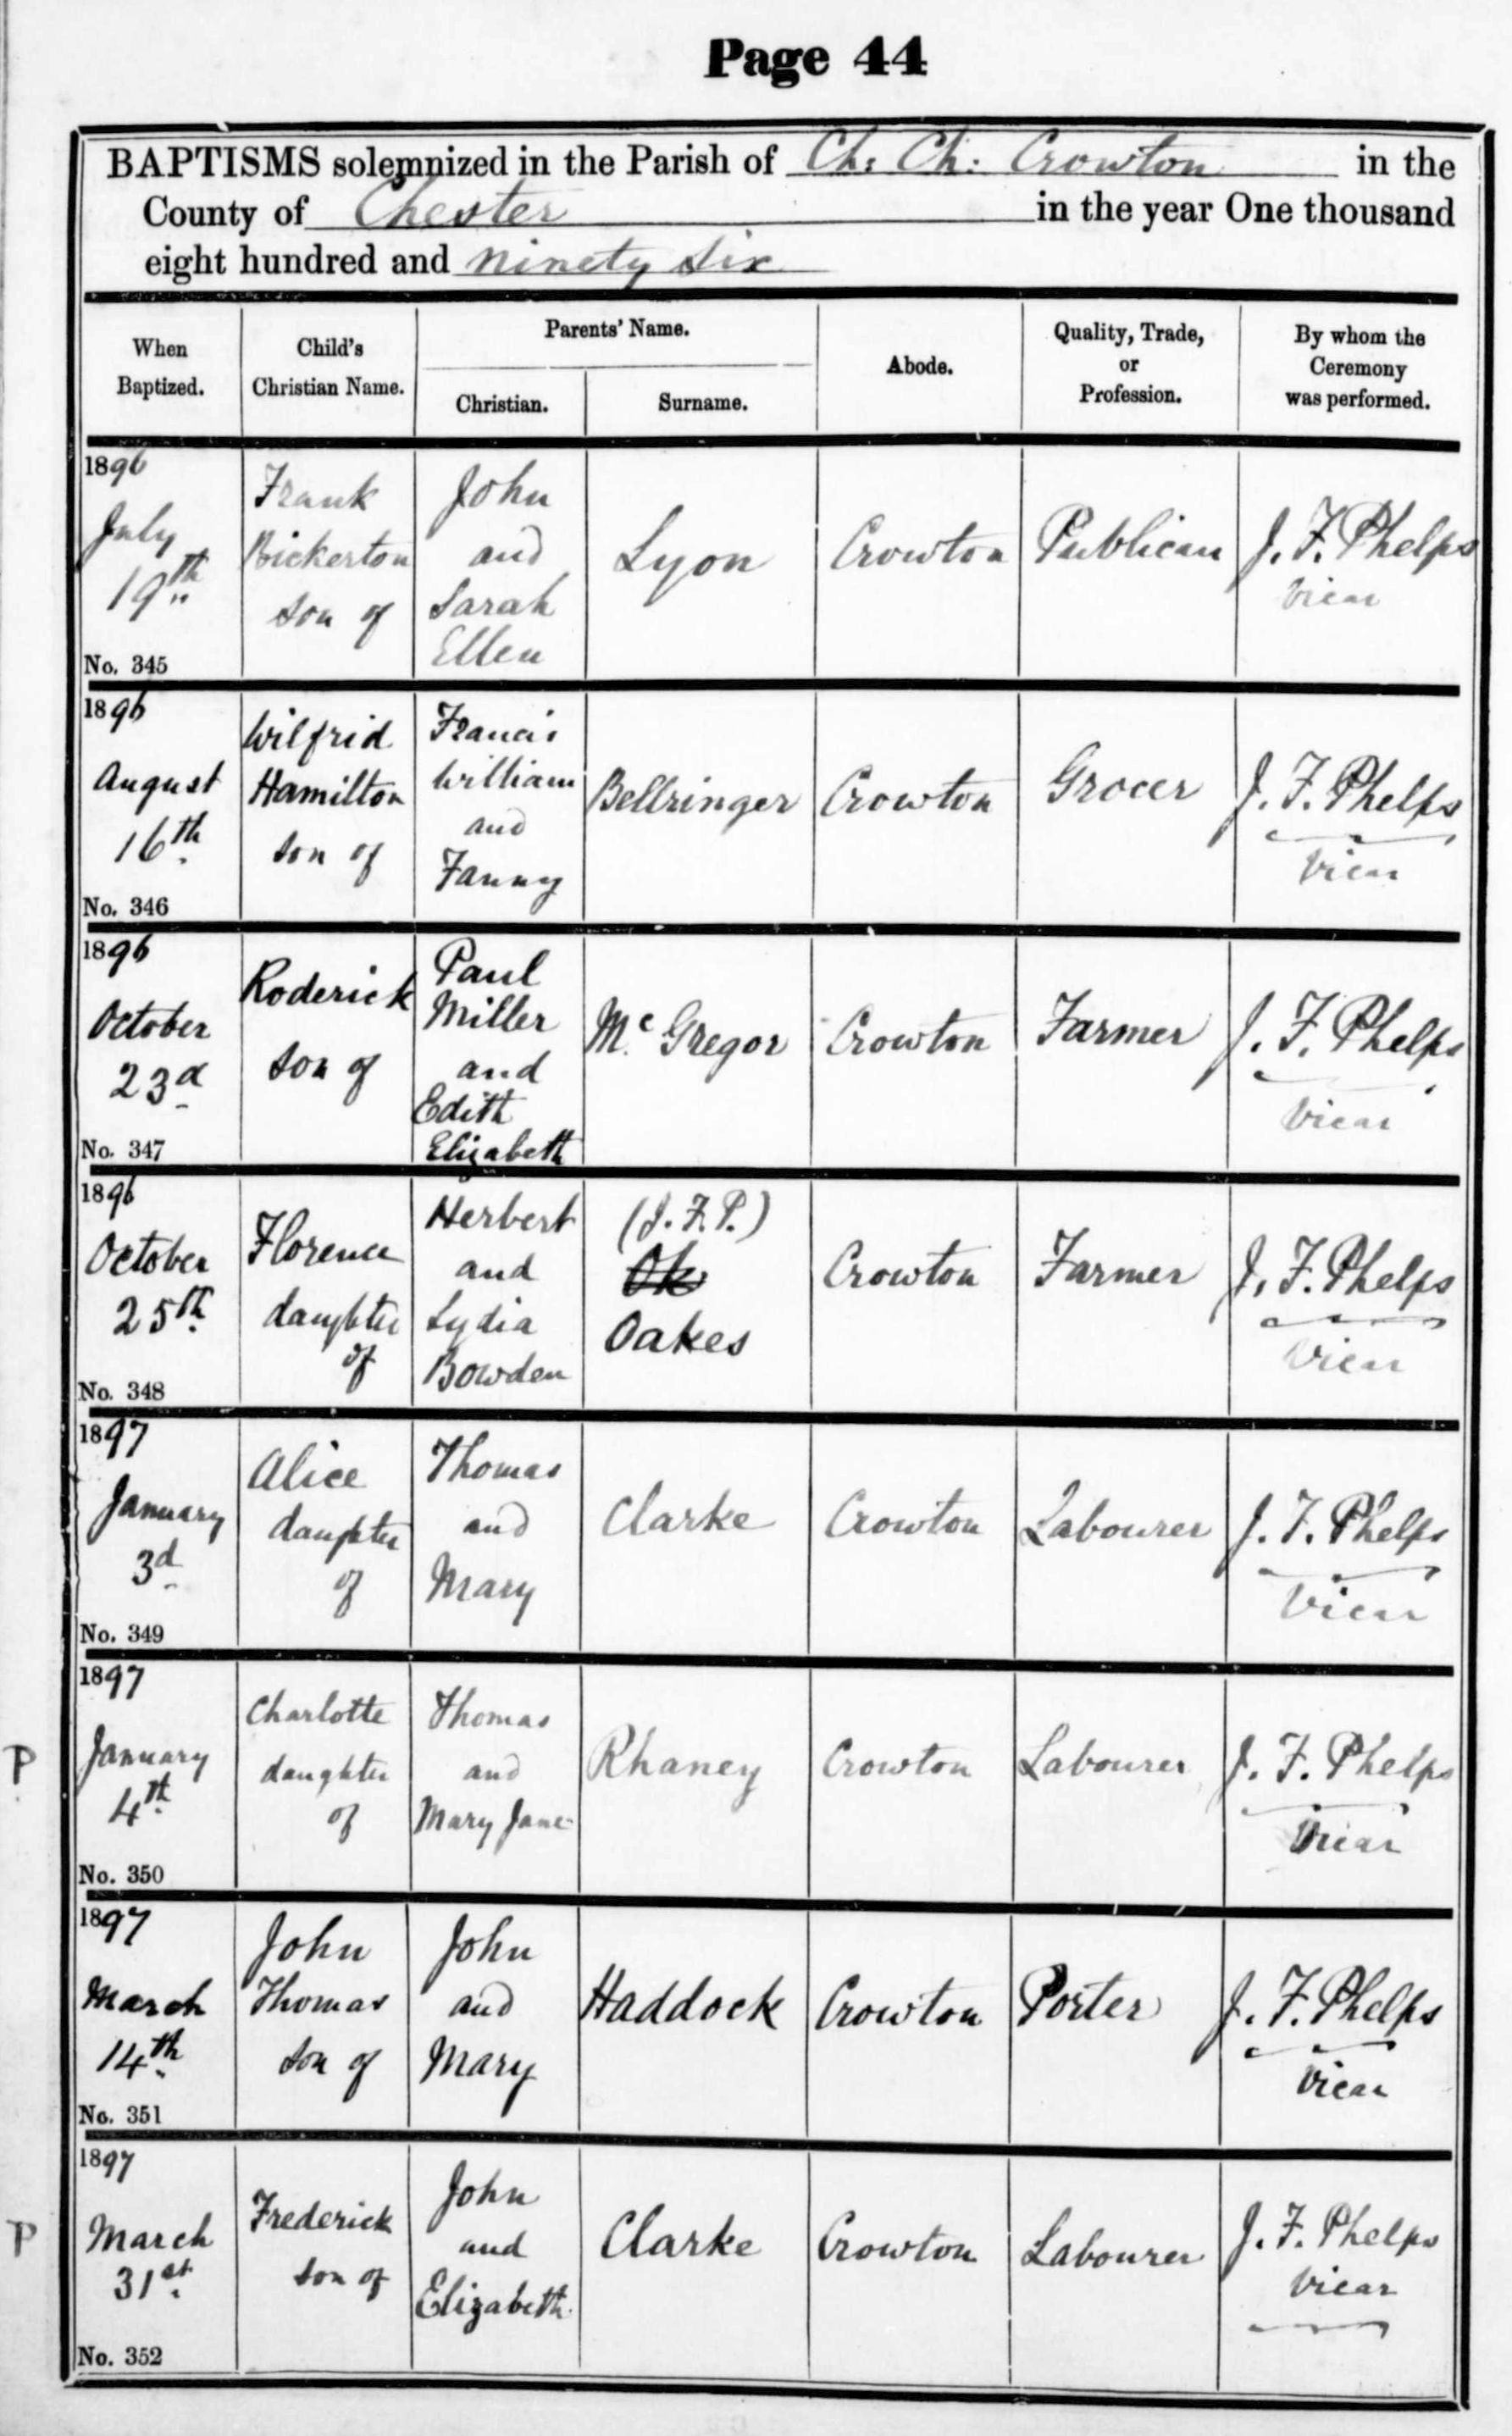 Page 44
BAPTISMS solemnized in the Parish of Ch: Ch: Crowton in the
County of Chester in the year One thousand
eight hundred and ninety six
When Baptized.
Child's Christian Name.
Parents' Name.
Christian.
Surname.
Abode.
Quality, Trade, or Profession.
By whom the Ceremony was performed.
1896
July
19th
No. 345
Frank
Bickerton
son of
John
and
Sarah
Ellen
Lyon
Crowton
Publican
J. F. Phelps
Vicar
1896
August
16th
No. 346
Wilfrid
Hamilton
son of
Francis
William
and
Fanny
Bellringer
Crowton
Grocer
J. F. Phelps
Vicar
1896
October
23d
No. 347
Roderick
son of
Paul
Miller
and
Edith
Elizabeth
Mc Gregor
Crowton
Farmer
J. F. Phelps
Vicar
1896
October
25th
No. 348
Florence
daughter
of
Herbert
and
Lydia
Bowden
(J. F. P.)
Ok
Oakes
Crowton
Farmer
J. F. Phelps
Vicar
1897
January
3d
No. 349
Alice
daughter
of
Thomas
and
Mary
Clarke
Crowton
Labourer
J. F. Phelps
Vicar
P
1897
January
4th
No. 350
Charlotte
daughter
of
Thomas
and
Mary Jane
Rhaney
Crowton
Labourer
J. F. Phelps
Vicar
1897
March
14th
No. 351
John
Thomas
son of
John
and
Mary
Haddock
Crowton
Porter
J. F. Phelps
Vicar
P
1897
March
31st
No. 352
Frederick
son of
John
and
Elizabeth
Clarke
Crowton
Labourer
J. F. Phelps
Vicar